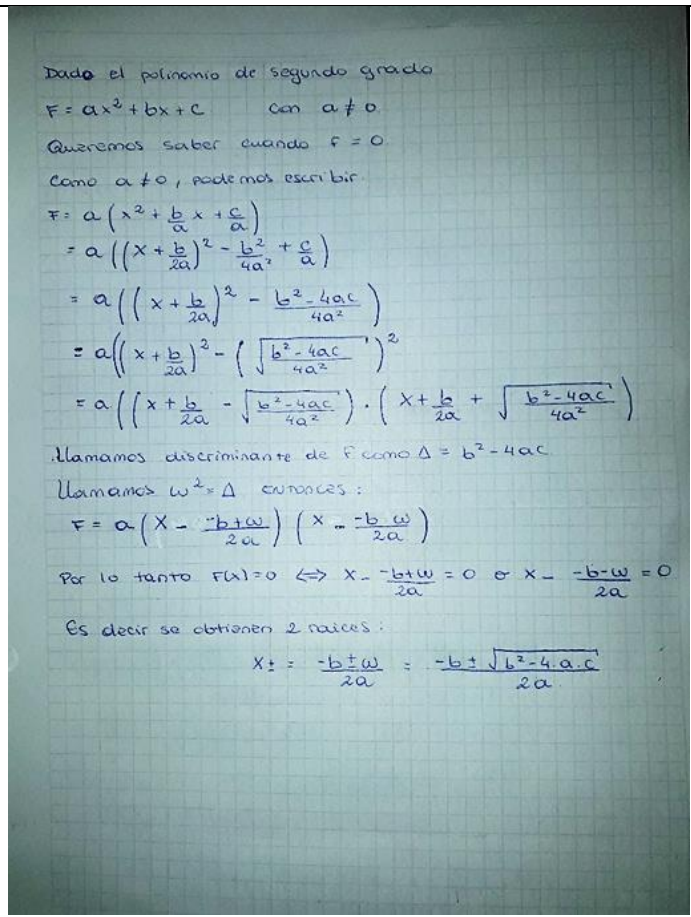 Dado el polinomio de segundo grado
F = ax² + bx + c con a ≠ 0.
Queremos saber cuando F = 0.
Como a ≠ 0, podemos escribir.
F = a(x² + b/a x + c/a)
= a((x + b/2a)² - b²/4a² + c/a)
= a((x + b/2a)² - b²-4ac/4a²)
= a((x + b/2a)² - (√(b²-4ac/4a²))²
= a((x + b/2a - √(b²-4ac/4a²)) · (x + b/2a + √(b²-4ac/4a²))
Llamamos discriminante de F como Δ = b² - 4ac
Llamamos ω² = Δ entonces:
F = a(x - -b+ω/2a) (x - -b ω/2a)
Por lo tanto F(x)=0 ⟺ x - -b+ω/2a = 0 o x - -b-ω/2a = 0
Es decir se obtienen 2 raices:
x± = -b±ω/2a = -b ± √(b²-4.a.c)/2a